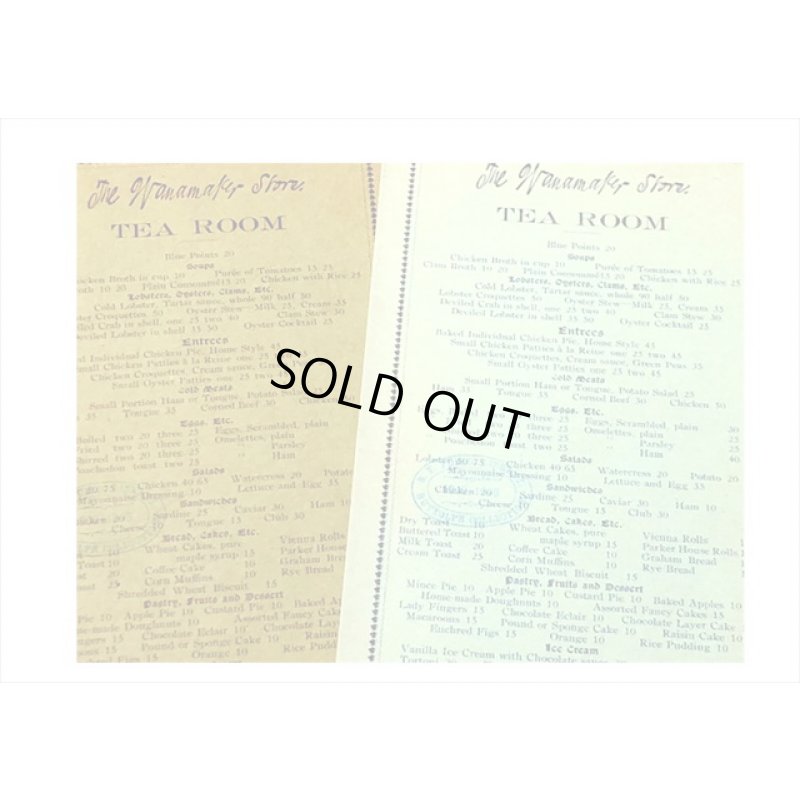 The Wanamaker Store.
TEA ROOM
Blue Points 20
Soups
Chicken Broth in cup 10 Purée of Tomatoes 15 25
Broth 10 20 Plain Consommé 15 20 Chicken with Rice 25
Lobsters, Oysters, Clams, Etc.
Cold Lobster, Tartar sauce, whole 90 half 50
Lobster Croquettes 50 Oyster Stew—Milk 25, Cream 35
Deviled Crab in shell, one 25 two 40 Clam Stew 30
Deviled Lobster in shell 35 50 Oyster Cocktail 25
Entrees
Baked Individual Chicken Pie, Home Style 45
Small Chicken Patties à la Reine one 25 two 45
Chicken Croquettes, Cream sauce, Green Peas
Small Oyster Patties one 25 two 45
Cold Meats
Small Portion Ham or Tongue, Potato Salad
Tongue 35 Corned Beef 30
Eggs, Etc.
two 20 three 25 Eggs, Scrambled, plain
Fried two 20 three 25 Omelettes, plain
two 20 three 25 Parsley
toast two 25 Ham
Salads
50 75 Chicken 40 65 Watercress 20 Potato
Mayonnaise Dressing 10 Lettuce and Egg 35
Sandwiches
Chicken 20 Sardine 25 Caviar 30 Ham 10
Cheese 10 Tongue 15 Club 30
Bread, Cakes, Etc.
Wheat Cakes, pure Vienna Rolls
maple syrup 15 Parker House
Coffee Cake Graham Bread
Corn Muffins 10 Rye Bread
Shredded Wheat Biscuit 15
Pastry, Fruits and Dessert
Pie 10 Apple Pie 10 Custard Pie 10 Baked Apples
Home-made Doughnuts 10 Assorted Fancy Cakes
Chocolate Eclair 10 Chocolate Layer Cake
Pound or Sponge Cake 10 Raisin Cake 10
Figs 15 Orange 10 Rice Pudding 10
The Wanamaker Store.
TEA ROOM
Blue Points 20
Soups
Chicken Broth in cup 10 Purée of Tomatoes 15 25
Clam Broth 10 20 Plain Consommé 15 20 Chicken with Rice 25
Lobsters, Oysters, Clams, Etc.
Cold Lobster, Tartar sauce, whole 90 half 50
Lobster Croquettes 50 Oyster Stew—Milk 25, Cream 35
Deviled Crab in shell, one 25 two 40 Clam Stew 30
Deviled Lobster in shell 35 50 Oyster Cocktail 25
Entrees
Baked Individual Chicken Pie, Home Style 45
Small Chicken Patties à la Reine one 25 two 45
Chicken Croquettes, Cream sauce, Green Peas 35
Small Oyster Patties one 25 two 45
Cold Meats
Small Portion Ham or Tongue, Potato Salad 25
Ham 35 Tongue 35 Corned Beef 30 Chicken 50
Eggs, Etc.
two 20 three 25 Eggs, Scrambled, plain 30
two 20 three 25 Omelettes, plain 25
two 20 three 25 Parsley 25
toast two 25 Ham 40
Salads
Lobster 50 75 Chicken 40 65 Watercress 20 Potato 20
Mayonnaise Dressing 10 Lettuce and Egg 35
Sandwiches
Chicken 20 Sardine 25 Caviar 30 Ham 10
Cheese 10 Tongue 15 Club 30
Bread, Cakes, Etc.
Dry Toast 10 Wheat Cakes, pure Vienna Rolls
Buttered Toast 10 maple syrup 15 Parker House Rolls
Milk Toast 20 Coffee Cake Graham Bread
Cream Toast 25 Corn Muffins 10 Rye Bread
Shredded Wheat Biscuit 15
Pastry, Fruits and Dessert
Mince Pie 10 Apple Pie 10 Custard Pie 10 Baked Apples 10
Home-made Doughnuts 10 Assorted Fancy Cakes
Lady Fingers 15 Chocolate Eclair 10 Chocolate Layer Cake
Macaroons 15 Pound or Sponge Cake 10 Raisin Cake 10
Enchred Figs 15 Orange 10 Rice Pudding 10
Ice Cream
Vanilla Ice Cream with Chocolate sauce
Tortoni
SOLD OUT